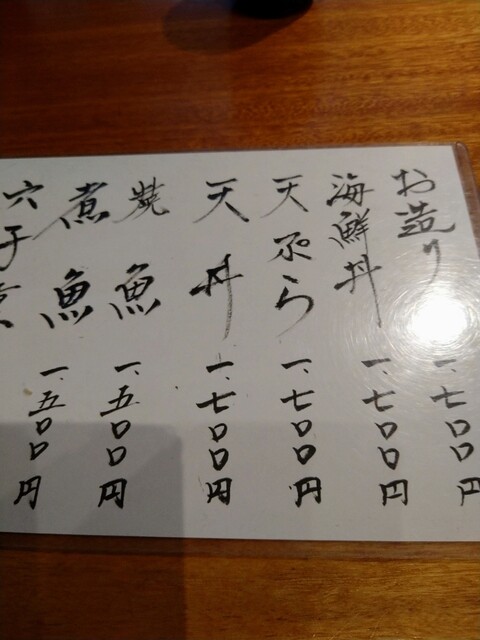 お造り 一、七〇〇円
海鮮丼 一、七〇〇円
天ぷら 一、七〇〇円
天丼 一、七〇〇円
焼魚 一、五〇〇円
煮魚 一、五〇〇円
穴子